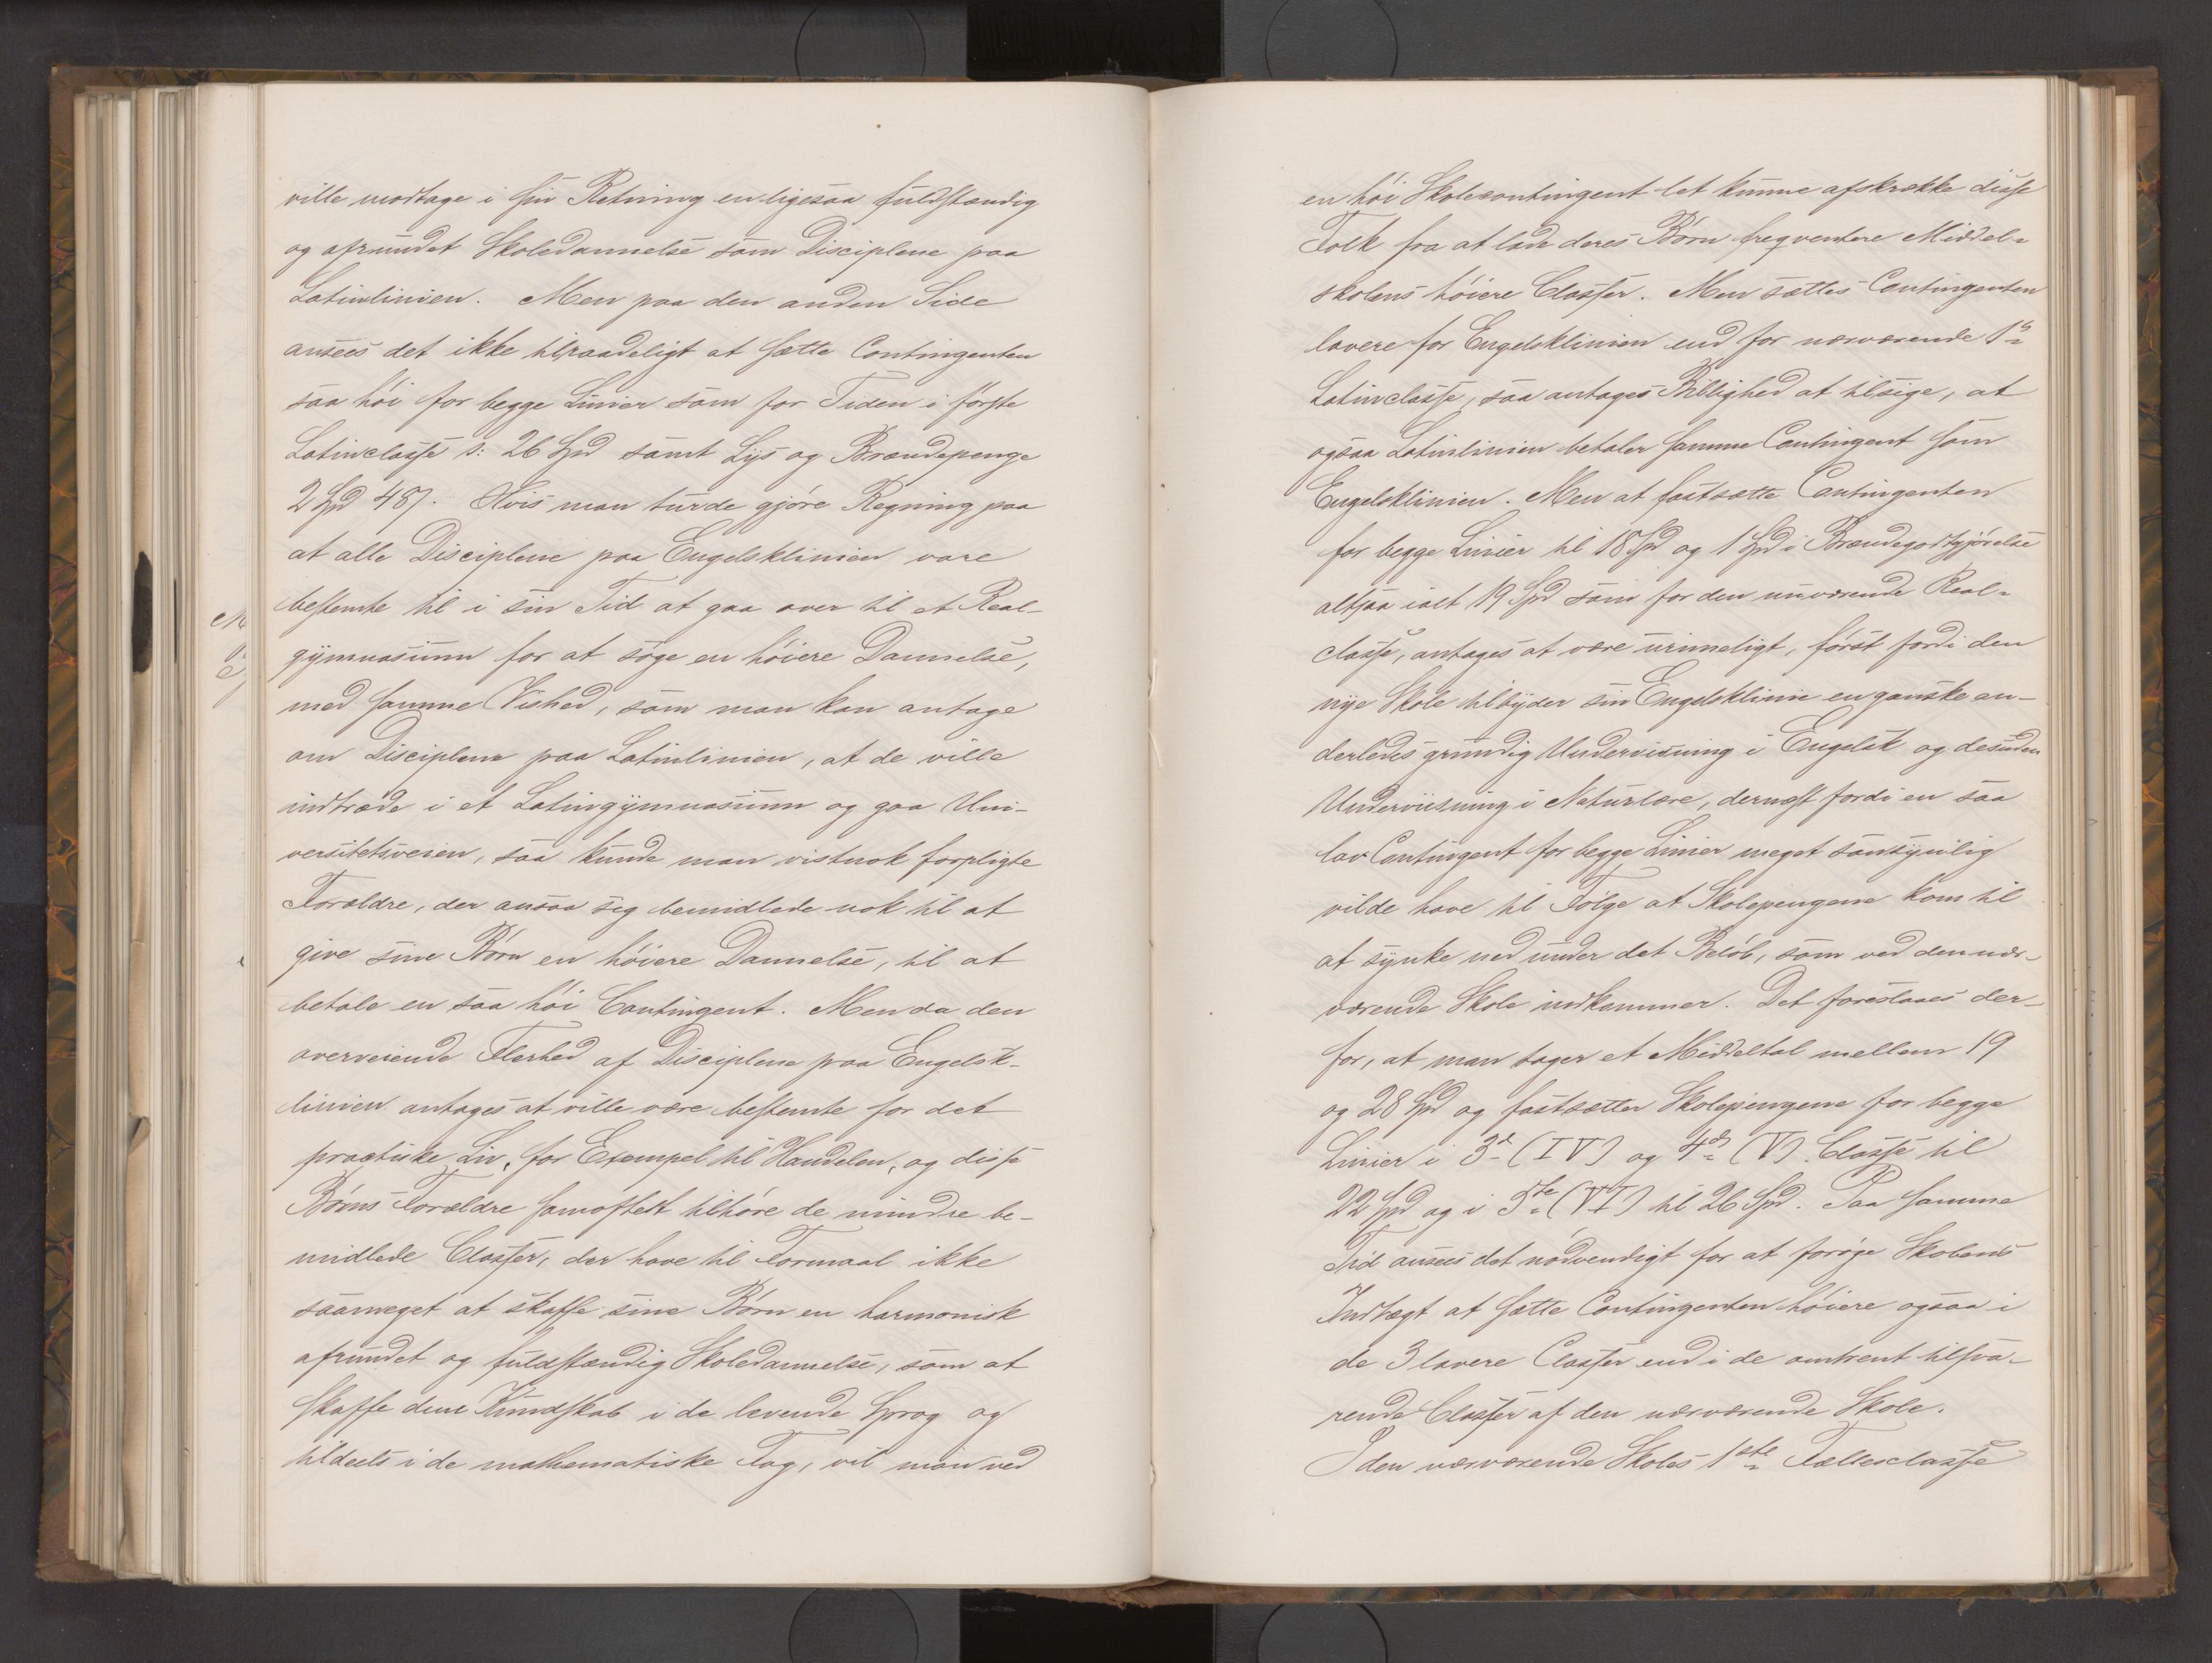 ville modtage i sin Retning en ligesaa fuldstændig
og afrundet Skoledannelse som Disciplene paa
Latinlinien. Men paa den anden Side
ansees det ikke tilraadeligt at sætte Contingenten
saa høi for begge Linier som for Tiden i første
Latinclasse ɔ: 26 Spd samt Lys og Brændepenge
2 Spd 48 s. Hvis man turde gjøre Regning paa
at alle Disciplene paa Engelsklinien vare
bestemte til i sin Tid at gaa over til et Real-
gymnasium for at søge en høiere Dannelse,
med samme Vished, som man kan antage
om Disciplene paa Latinlinien, at de ville
indtræde i et Latingymnasium og gaa Uni-
versitetsveien, saa kunde man vistnok forpligte
Forældre, der ansaa sig bemidlede nok til at
give sine Børn en høiere Dannelse, til at
betale en saa høi Contingent. Men da den
overveiende Flerhed af Disciplene paa Engelsk-
linien antages at ville være bestemte for det
practiske Liv, for Exempel til Handelen, og disse
Børns Forældre somoftest tilhøre de mindre be-
midlede Classer, der have til Formaal ikke
saameget at skaffe sine Børn en harmonisk
afrundet og fuldstændig Skoledannelse, som at
skaffe dem Kundskab i de levende Sprog og
tildeels i de mathematiske Fag, vil man ved
en høi Skolecontingent let kunne afskrække disse
Folk fra at lade deres Børn freqventere Middel-
skolens høiere Classer. Men sættes Contingenten
lavere for Engelsklinien end for nærværende 1ᵉ
Latinclasse, saa antages Billighed at tilsige, at
ogsaa Latinlinien betaler samme Contingent som
Engelsklinien. Men at fastsætte Contingenten
for begge Linier til 18 Spd og 1 Spd i Brændegodtgjørelse
altsaa ialt 19 Spd som for den nuværende Real-
classe, antages at være urimeligt, først fordi den
nye Skole tilbyder sin Engelsklinie en ganske an-
derledes grundig Undervisning i Engelsk og desuden
Underviisning i Naturlære, dernæst fordi en saa
lav Contingent for begge Linier meget sandsynlig
vilde have til Følge at Skolepengene kom til
at synke ned under det Beløb, som ved den nær-
værende Skole indkommer. Det foreslaaes der-
for, at man tager et Middeltal mellem 19
og 28 Spd og fastsætter Skolepengene for begge
Linier i 3d (IV) og 4de (V) Classe til
22 Spd og i 5te (VI) til 26 Spd. Paa samme
Tid ansees det nødvendigt for at forøge Skolens
Indtægt at sætte Contingenten høiere ogsaa i
de 3 lavere Classer end i de omtrent tilsva-
rende Classer af den nærværende Skole.
I den nærværende Skoles 1ste Fællesclasse